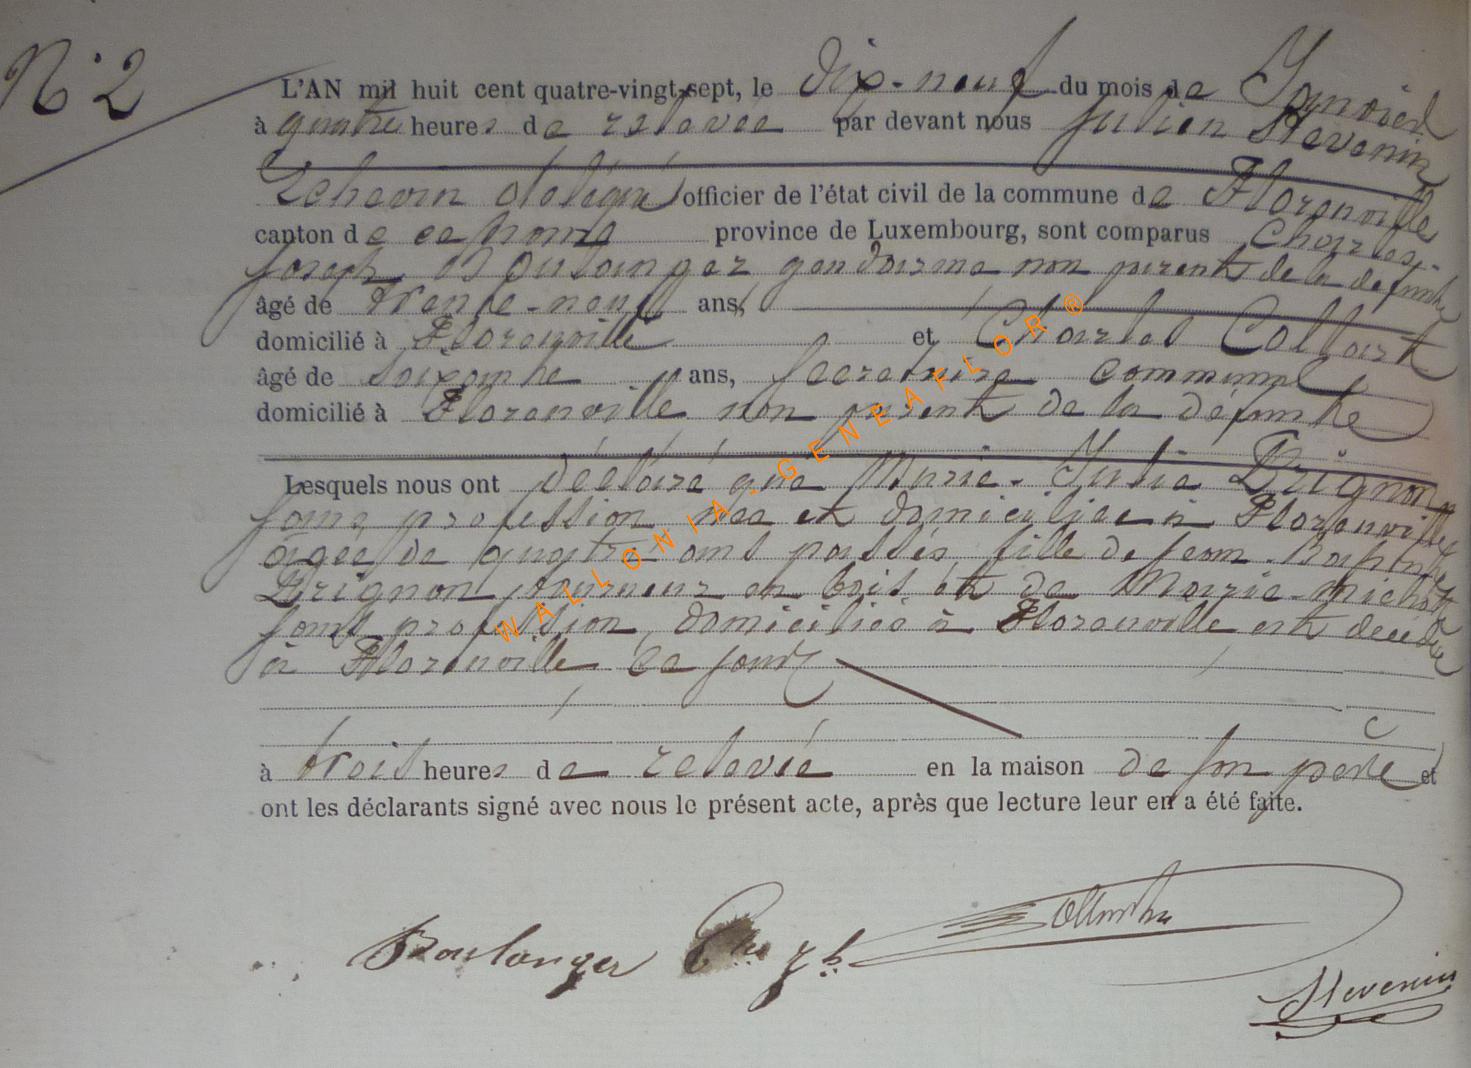 N° 2
L'AN mil huit cent quatre-vingt-sept, le dix-neuf du mois de Janvier
à quatre heures de relevée par devant nous Julien Stevenin
Echevin délégué officier de l'état civil de la commune de Florenville
canton de ce nom province de Luxembourg, sont comparus Charles-
Joseph Boulanger gendarme non parent de la défunte
âgé de trente-neuf ans,
domicilié à Florenville et Charles Collart
âgé de soixante ans, secrétaire communal
domicilié à Florenville non parent de la défunte
Lesquels nous ont déclaré que Marie-Julie Brignon
sans profession née et domiciliée à Florenville
âgée de quatre ans passés fille de Jean-Baptiste
Brignon tourneur en bois et de Marie
sans profession, domiciliés à Florenville est décédée
à Florenville ce jour
à trois heures de relevée en la maison de son père et
ont les déclarants signé avec nous le présent acte, après que lecture leur en a été faite.
Boulanger Ch Jh Collart
Stevenin
WALLONIA-GENEAFLOR®